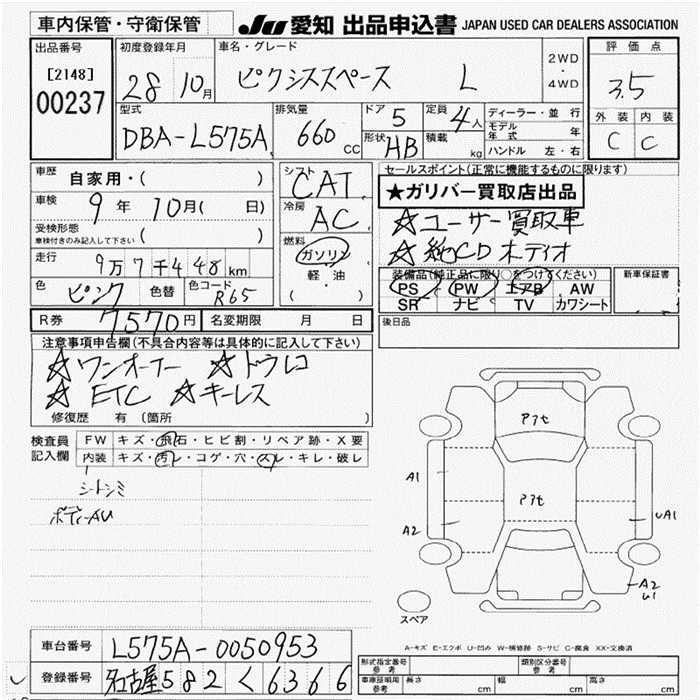 車内保管・守衛保管 JU 愛知 出品申込書 JAPAN USED CAR DEALERS ASSOCIATION
出品番号 [2148] 00237
初度登録年月 28 10月
車名・グレード ピクシススペース L
2WD ・ 4WD
評価点 3.5
外装 内装 C C
型式 DBA-L575A
排気量 660 CC
ドア 5 形状 HB
定員 4人 積載 kg
ディーラー・並行
モデル年式 年
ハンドル 左・右
車歴 自家用・( )
車検 9年 10月( 日)
受検形態 ( )
車検付きのみ記入して下さい
走行 9万7千448km
色 ピンク 色替 色コード R65
シフト CAT
冷房 AC
燃料 ガソリン 軽油 ( )
セールスポイント(正常に機能するものに限ります)
★ガリバー買取店出品
☆ユーザー買取車
☆純CDオーディオ
装備品(純正品に限り○をつけてください)
PS PW エアB AW
SR ナビ TV カワシート
新車保証書
後日品
R券 7570円 名変期限 月 日
注意事項申告欄(不具合内容等は具体的に記入して下さい)
☆ワンオーナー ☆ドラレコ
☆ETC ☆キーレス
修復歴 有 (箇所 )
検査員記入欄
FW キズ・飛石・ヒビ割・リペア跡・X要
内装 キズ・汚レ・コゲ・穴・スレ・キレ・破レ
シートシミ
ボディーAU
アセ
アセ
A1
A2
UA1
A2
U1
スペア
A-キズ E-エクボ U-凹み W-補修跡 S-サビ C-腐食 XX-交換済
車台番号 L575A-0050953
登録番号 名古屋 582 く 6366
型式指定番号 参考 類別区分番号 参考
車庫証明用 参考 長さ cm 幅 cm 高さ cm